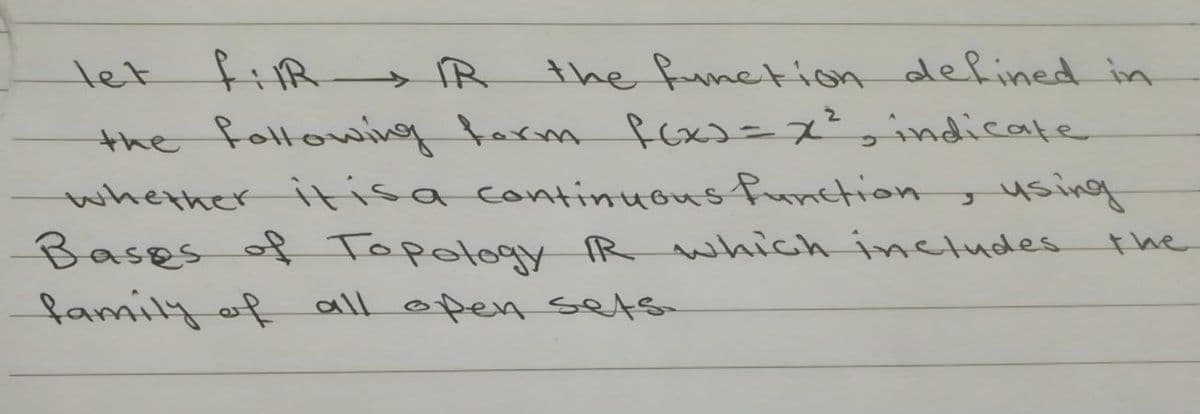 let f: ℝ → ℝ the function defined in
the following form f(x) = x², indicate
whether it is a continuous function, using
Bases of Topology ℝ which includes the
family of all open sets.